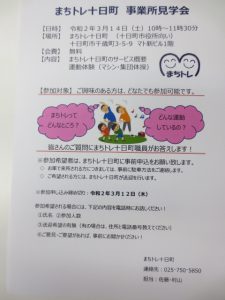 まちトレ十日町 事業所見学会
【日時】 令和２年３月１４日（土）10時～11時30分
【場所】 まちトレ十日町 （十日町市役所向い）
十日町市千歳町3-5-9 マト新ビル1階
【会費】 無料
【内容】 まちトレ十日町のサービス概要
運動体験（マシン・集団体操）
まちトレ
【参加対象】 ご興味のある方は、どなたでも参加可能です。
まちトレって
どんなところ？
どんな運動
しているの？
皆さんのご質問にまちトレ十日町職員がお答えします！
※参加希望者は、まちトレ十日町に事前申込をお願い致します。
○ お車で来所される方につきましては、事前に駐車方法をご連絡します。
○ ご希望される方には、まちトレ十日町が送迎を行います。
※参加申し込み締め切り：令和２年３月１２日（木）
参加希望される場合には、下記の内容を電話時にお話しください！
①氏名 ②参加人数
③送迎希望の有無（有の場合は、住所と電話番号教えてください）
④ご意見・ご要望があれば、事前にお聞かせください！
まちトレ十日町
連絡先：025-750-5650
担当：佐藤・村山